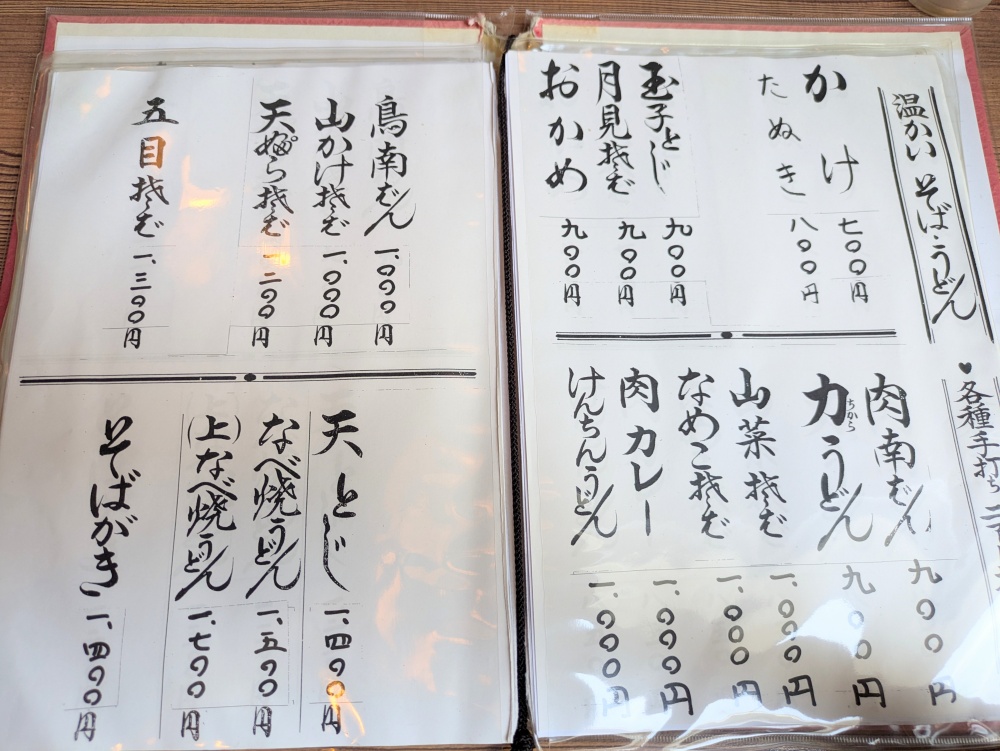 温かい そば・うどん
かけ 七〇〇円
たぬき 八〇〇円
玉子とじ 九〇〇円
月見そば 九〇〇円
おかめ 九〇〇円
♥各種手打ち
肉南ばん 九〇〇円
力うどん 九〇〇円
ちから
山菜そば 一、〇〇〇円
なめこそば 一、〇〇〇円
肉カレー 一、〇〇〇円
けんちんうどん 一、〇〇〇円
鳥南ばん 一、〇〇〇円
山かけそば 一、〇〇〇円
天ぷらそば 一、二〇〇円
五目そば 一、三〇〇円
天とじ 一、四〇〇円
なべ焼うどん 一、五〇〇円
(上)なべ焼うどん 一、七〇〇円
そばがき 一、四〇〇円